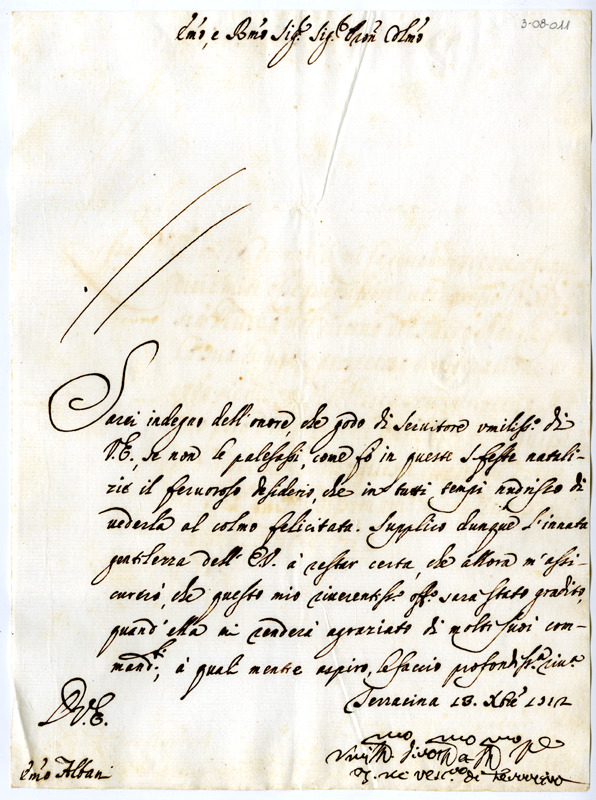 3-08-011
Em̃o, e Rm̃o Sig.r Sig.r Pron Colm̃o
Sarei indegno dell'onore, che godo di servitore umiliss.o di
V.E., se non le palesassi, come fò in queste S.te feste natali-
zie il fervoroso desiderio, che in tutti tempi nudrisco di
vederla al colmo felicitata. Supplico dunque l'innata
gentilezza dell'E.V. à restar certa, che allora m'assi-
curerò, che questo mio riverentiss.o off.o sarà stato gradito,
quand'ella mi renderà agraziato di molti suoi com-
mand.ti, à quali mentre aspiro, le faccio profondiss.a riv.a
Terracina 18. Xbre 1712
D.V.E.
Em̃o Albani
Vesc.vo di Terracina